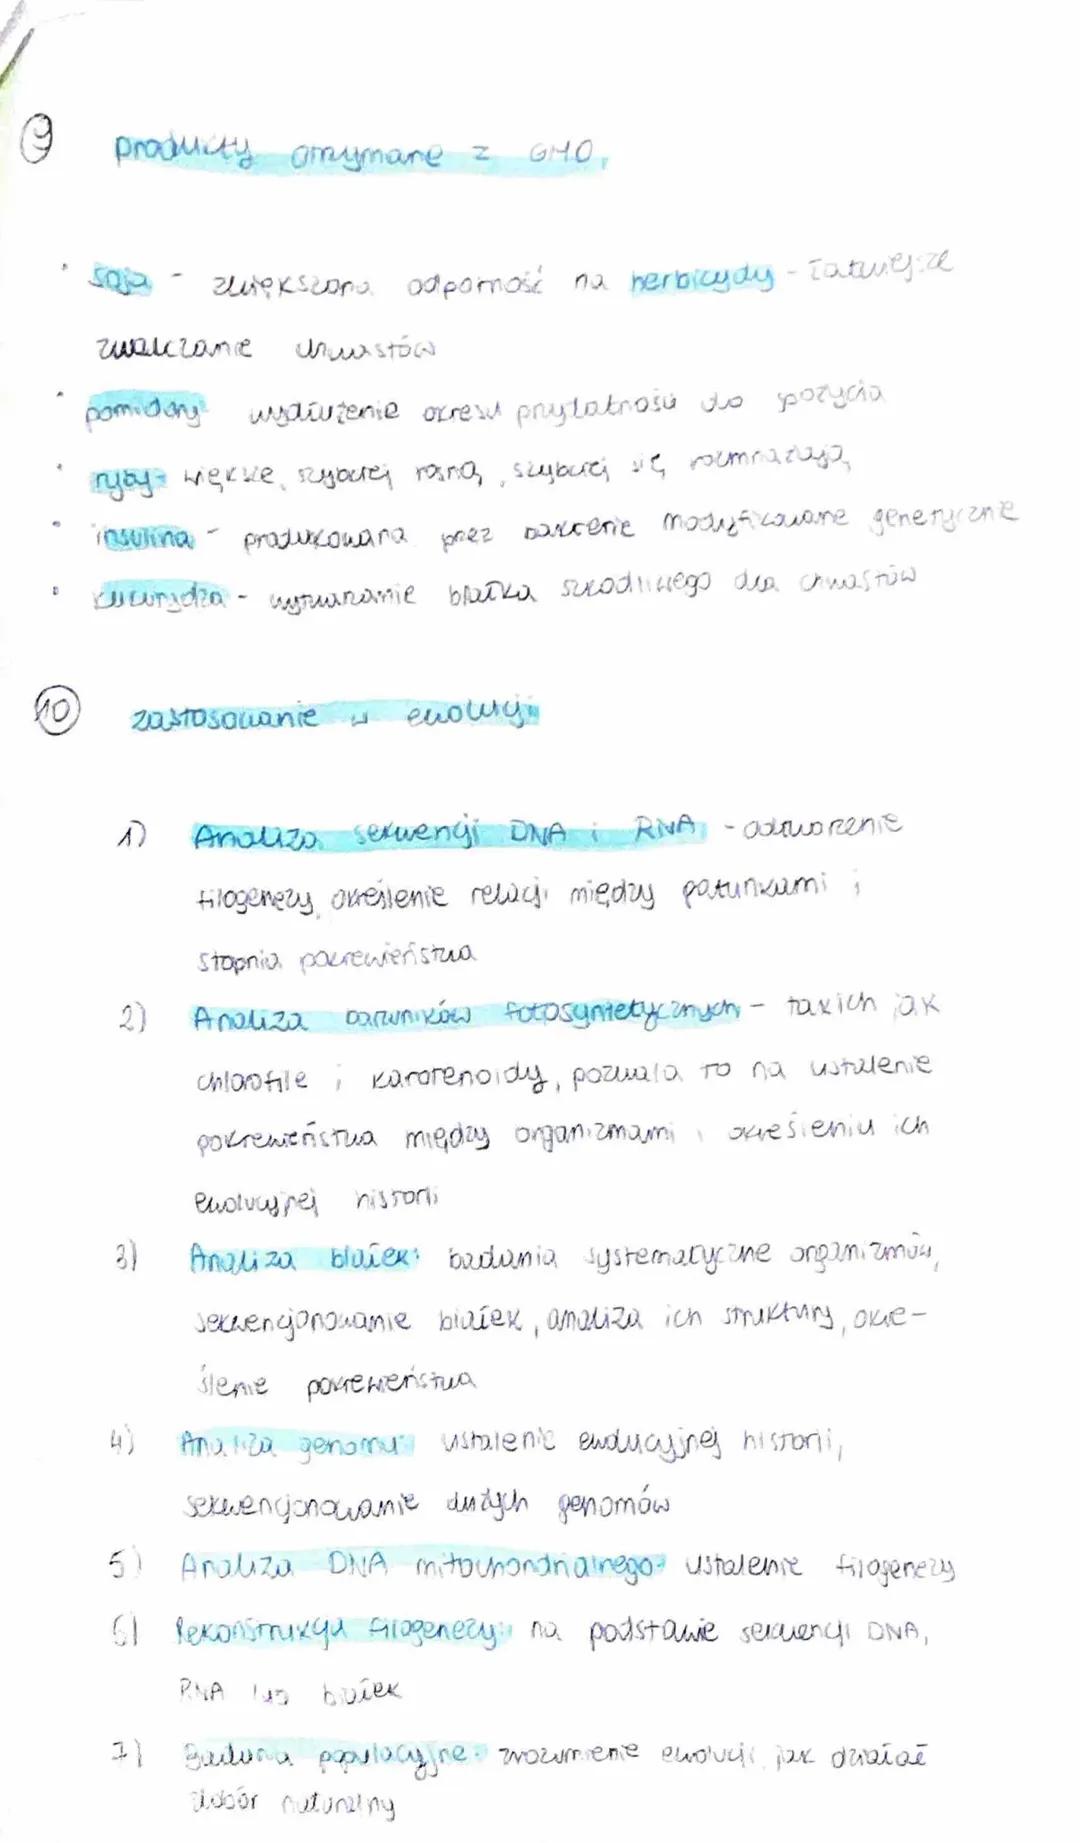 9 produkty otrzymane z GMO
• soja - zwiększona odporność na herbicydy - łatwiejsze
zwalczanie chwastów
• pomidory wydłużenie okresu przydatności do spożycia
• ryby - większe, szybciej rosną, szybciej się rozmnażają
• insulina - produkowana przez bakterie modyfikowane genetycznie
• kukurydza - wytwarzanie białka szkodliwego dla chwastów
10 zastosowanie w ewolucji
1) Analiza sekwencji DNA i RNA - odtworzenie
filogenezy, określenie relacji między gatunkami i
stopnia pokrewieństwa
2) Analiza barwników fotosyntetycznych - takich jak
chlorofile i karotenoidy, pozwala to na ustalenie
pokrewieństwa między organizmami i określeniu ich
ewolucyjnej historii
3) Analiza białek: badania systematyczne organizmów,
sekwencjonowanie białek, analiza ich struktury, okre-
ślenie pokrewieństwa
4) Analiza genomu: ustalenie ewolucyjnej historii,
sekwencjonowanie dużych genomów
5) Analiza DNA mitochondrialnego: ustalenie filogenezy
6) Rekonstrukcja filogenezy: na podstawie sekwencji DNA,
RNA lub białek
7) Badania populacyjne: zrozumienie ewolucji, jak działał
dobór naturalny